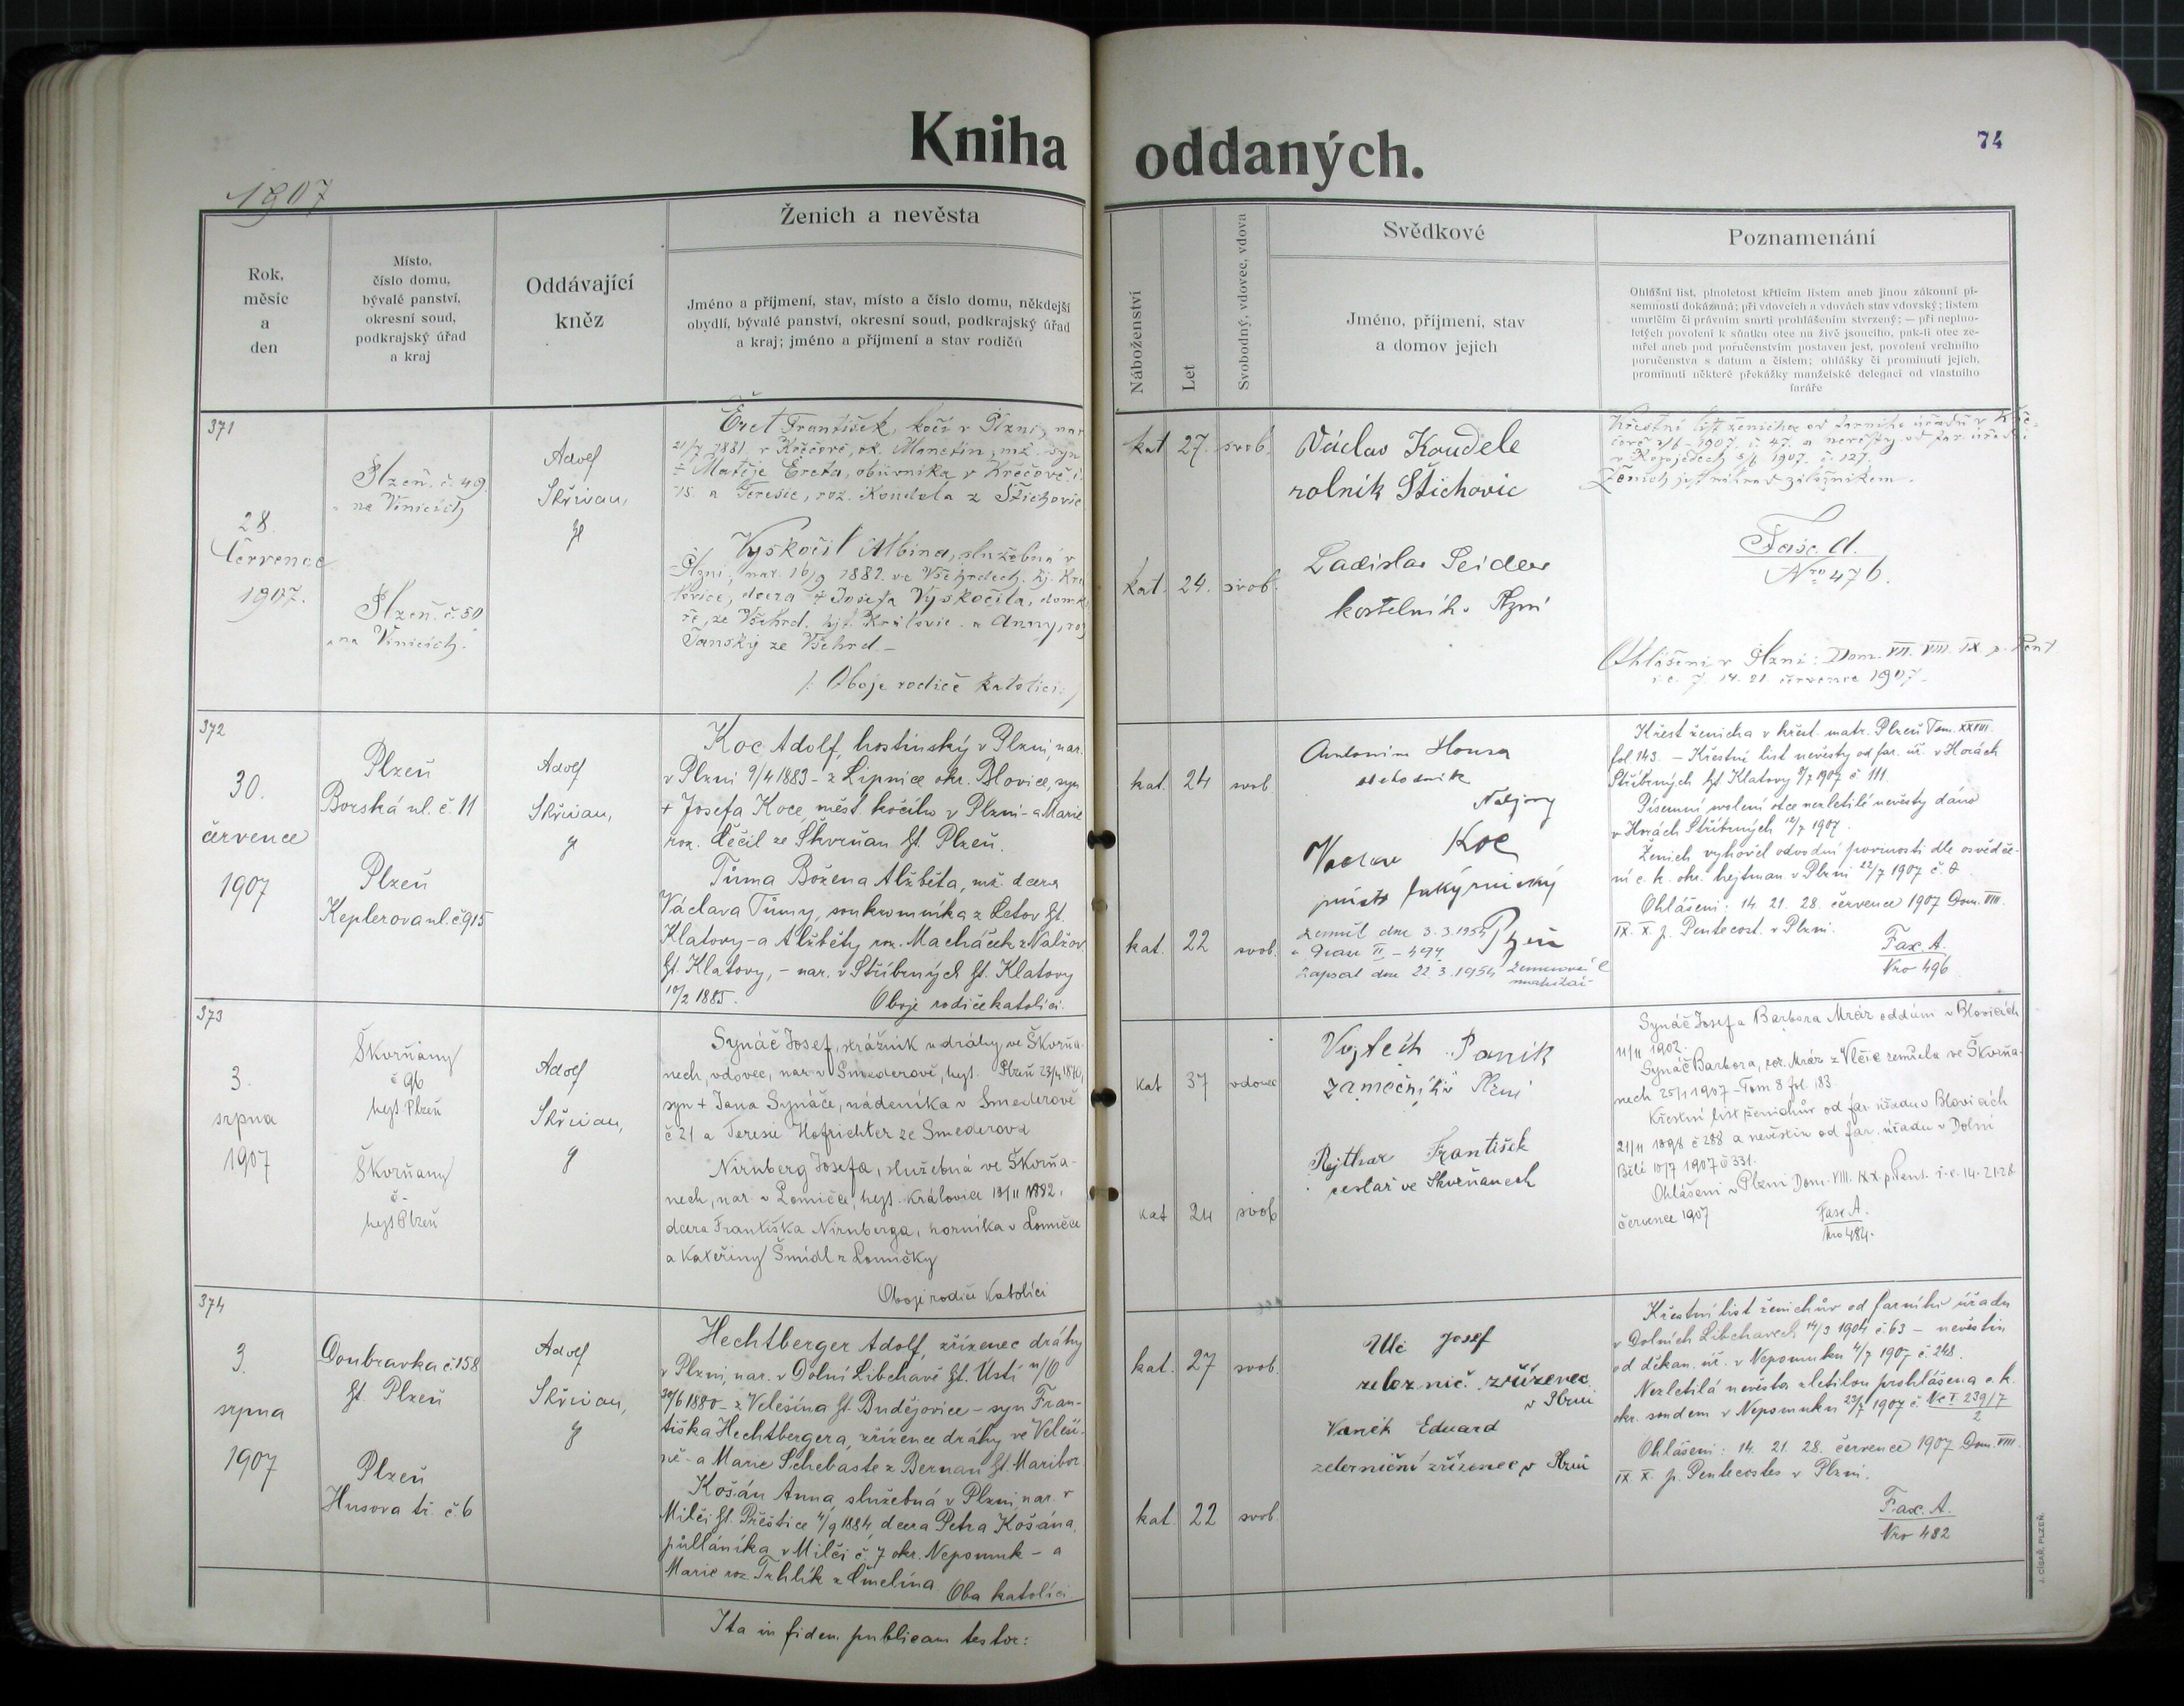 Kniha oddaných.
74
1907
Rok,
měsíc
a
den
Místo,
číslo domu,
bývalé panství,
okresní soud,
podkrajský úřad
a kraj
Oddávající
kněz
Ženich a nevěsta
Jméno a příjmení, stav, místo a číslo domu, někdejší
obydlí, bývalé panství, okresní soud, podkrajský úřad
a kraj; jméno a příjmení a stav rodičů
Náboženství
Let
Svobodný, vdovec, vdova
Svědkové
Jméno, příjmení, stav
a domov jejich
Poznamenání
Ohlášní list, plnoletost křticím listem aneb jinou zákonní pí-
semností dokázaná; při vdovcích a vdovách stav vdovský; listem
umrlčím či právním smrti prohlášením stvrzený; — při neplno-
letých povolení k sňatku otce na živě jsoucího, pak-li otec ze-
mřel aneb pod poručenstvím postaven jest, povolení vrchního
poručenstva s datum a číslem; ohlášky či prominutí jejich,
prominutí některé překážky manželské delegací od vlastního
faráře
371
28.
července
1907.
Plzeň. č. 49
na Vinicích
Plzeň č. 50
"na Vinicích."
Adolf
Skřivan,
Éret František, kočí v Plzni, nar.
21/7 1881. v Křečově, ok. Manetín, mž. syn
Matěje Éreta, obuvníka v Křečově č.
15. a Terezie, roz. Koudela z Štichovic
Vyskočil Albina, služebná v
Plzni, nar. 16/9 1882. ve Všehrdech, hj. Kra
lovice, dcera + Josefa Vyskočila, domká
ře, ze Všehrd. hjt. Kralovic. a Anny, roz
Janský ze Všehrd.-
/: Oboje rodiče katolíci :/
kat 27. svob.
kat. 24. svob.
Václav Koudele
rolník Štichovic
Ladislav Seidler
kostelník v Plzni
Křestní list ženicha od farního úřadu v Kře-
čově 2/6 - 1907. č. 47. a nevěsty od far. úřadu
v Kozojedech 5/6 1907. č. 127.
Fasc. A.
Nro 476.
Ohlášeni v Plzni: Dom. VII. VIII. IX. p. Pent
i. e. 7. 14. 21. července 1907.
372
30.
července
1907
Plzeň
Borská ul. č. 11
Plzeň
Keplerova ul. č. 915
Adolf
Skřivan,
Koc Adolf, hostinský v Plzni, nar.
v Plzni 9/4 1883 - z Lipnice okr. Blovice, syn
+ Josefa Koce, měst. kočího v Plzni - a Marie
roz. Čečil ze Skvrňan ht. Plzeň.
Tůma Božena Alžběta, mž. dcera
Václava Tůmy, soukromníka z Letov ht.
Klatovy - a Alžběty roz. Macháček z Nalžov
ht. Klatovy, - nar. v Stříbrných ht. Klatovy
10/2 1885. Oboje rodiče katolíci.
kat. 24 svob.
kat. 22 svob.
Antonín Housa
obchodník
Václav Koc
Plzeň
Zemřel dne 3.3.1954
zapsal dne 22.3.1954
Křest ženicha v křest. matr. Plzeň Tom. XXVIII.
fol. 143. - Křestní list nevěsty od far. úř. v Horách
Stříbrných ht. Klatovy 9/7 1907 č 111.
Písemní svolení otce nezletilé nevěsty dáno
v Horách Stříbrných 12/7 1907.
Ženich vyhověl odvodní povinnosti dle osvědče-
ní c. k. okr. hejtman. v Plzni 22/7 1907 č. 2
Ohlášeni: 14. 21. 28. července 1907 Dom. VIII.
IX. X. p. Pentecost. v Plzni.
Fasc. A.
Nro 496
373
3.
srpna
1907
Škvrňany
č 96
hejt Plzeň
Škvrňany
č -
hejt Plzeň
Adolf
Skřivan,
Synáč Josef, strážník u dráhy, ve Škvrňa-
nech, vdovec, nar. v Smederově, hejt. Plzeň 23/4 1870,
syn + Jana Synáče, nádeníka v Smederově
č 21 a Terezie Hofrichter ze Smederova
Nirnberg Josefa, služebná ve Škvrňa-
nech, nar. v Lomiče, hejt. Kralovice 19/11 1882.
dcera Františka Nirnberga, horníka v Lomiče
a Kateřiny Šmidl z Lomičky
Oboje rodiče katolíci
kat 37 vdovec
kat 24 svob
Vojtěch Panik
zámečník v Plzni
Rejthar František
cestář ve Skvrňanech
Synáč Josef a Barbora Mráz oddáni v Blovicích
11/11 1902.
Synáč Barbora, roz. Mráz z Vlčic zemřela ve Škvrňa-
nech 25/1 1907 - Tom 8 fol. 183.
Křestní list ženichův od far. úřadu v Blovicích
21/11 1898 č 288 a nevěstin od far. úřadu v Dolní
Bělé 10/7 1907 č 331.
Ohlášeni v Plzni Dom. VIII. IX X p. Pent. i. e. 14. 21. 28
července 1907
Fasc A.
Nro 484.
374
3.
srpna
1907
Doubravka č. 158
ht. Plzeň
Plzeň
Husova tř. č. 6
Adolf
Skřivan,
Hechtberger Adolf, zřízenec dráhy
v Plzni, nar. v Dolní Libchavě ht. Ústí n/O
30/6 1880 - z Velešína ht. Budějovice - syn Fran-
tiška Hechtbergera, zřízence dráhy ve Veleší-
ně - a Marie Schebaste z Bernau ht. Maribor
Košán Anna, služebná v Plzni, nar. v
Milči ht. Přeštice 4/9 1884 dcera Petra Košána,
půlláníka v Milči č. 7 okr. Nepomuk - a
Marie roz. Trhlík z Čmelína. Oba katolíci
kat. 27 svob.
kat. 22 svob.
Ulč Josef
železnič. zřízenec
v Plzni
Vaněk Eduard
železniční zřízenec v Plzni
Křestní list ženichův od farního úřadu
v Dolních Libchavech 14/3 1904 č. 63 - nevěstin
od děkan. úř. v Nepomuku 4/7 1907 č. 248.
Nezletilá nevěsta zletilou prohlášena c. k.
okr. soudem v Nepomuku 23/7 1907 č. Nc I. 239/7
2
Ohlášeni: 14. 21. 28. července 1907 Dom. VIII.
IX. X. p. Pentecostes v Plzni.
Fasc. A.
Nro 482
Ita in fidem publicam testor:
J. CÍSAŘ, PLZEŇ.